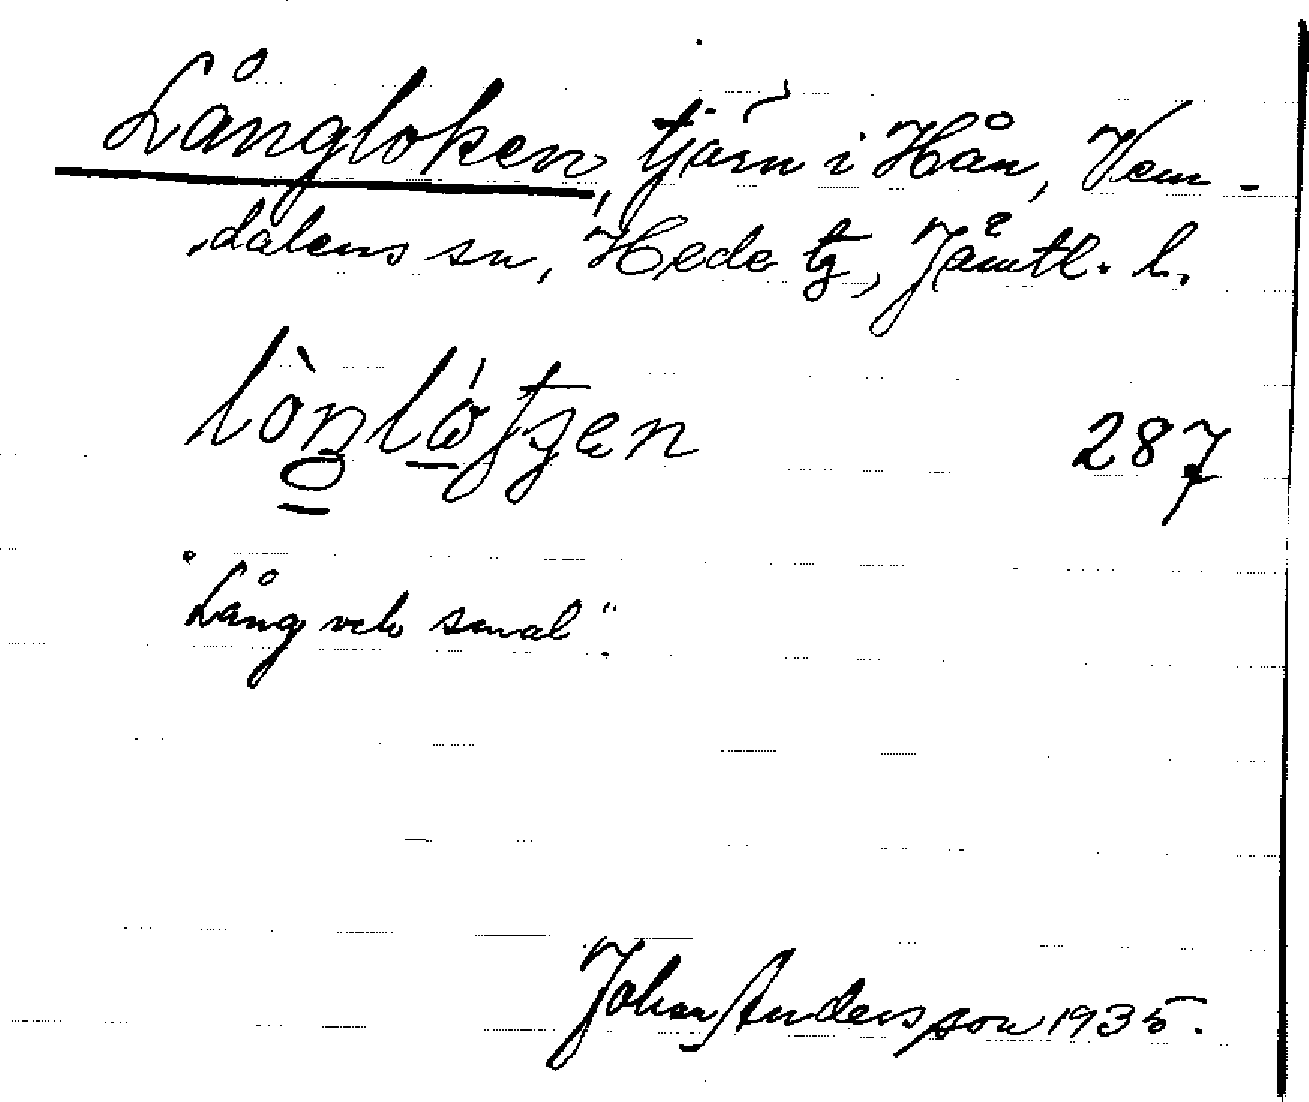 Långloken, tjärn i Hån, Vem-
dalens sn, Hede tg, Jämtl. l.
287
"Lång och smal".
Johan Andersson 1935.